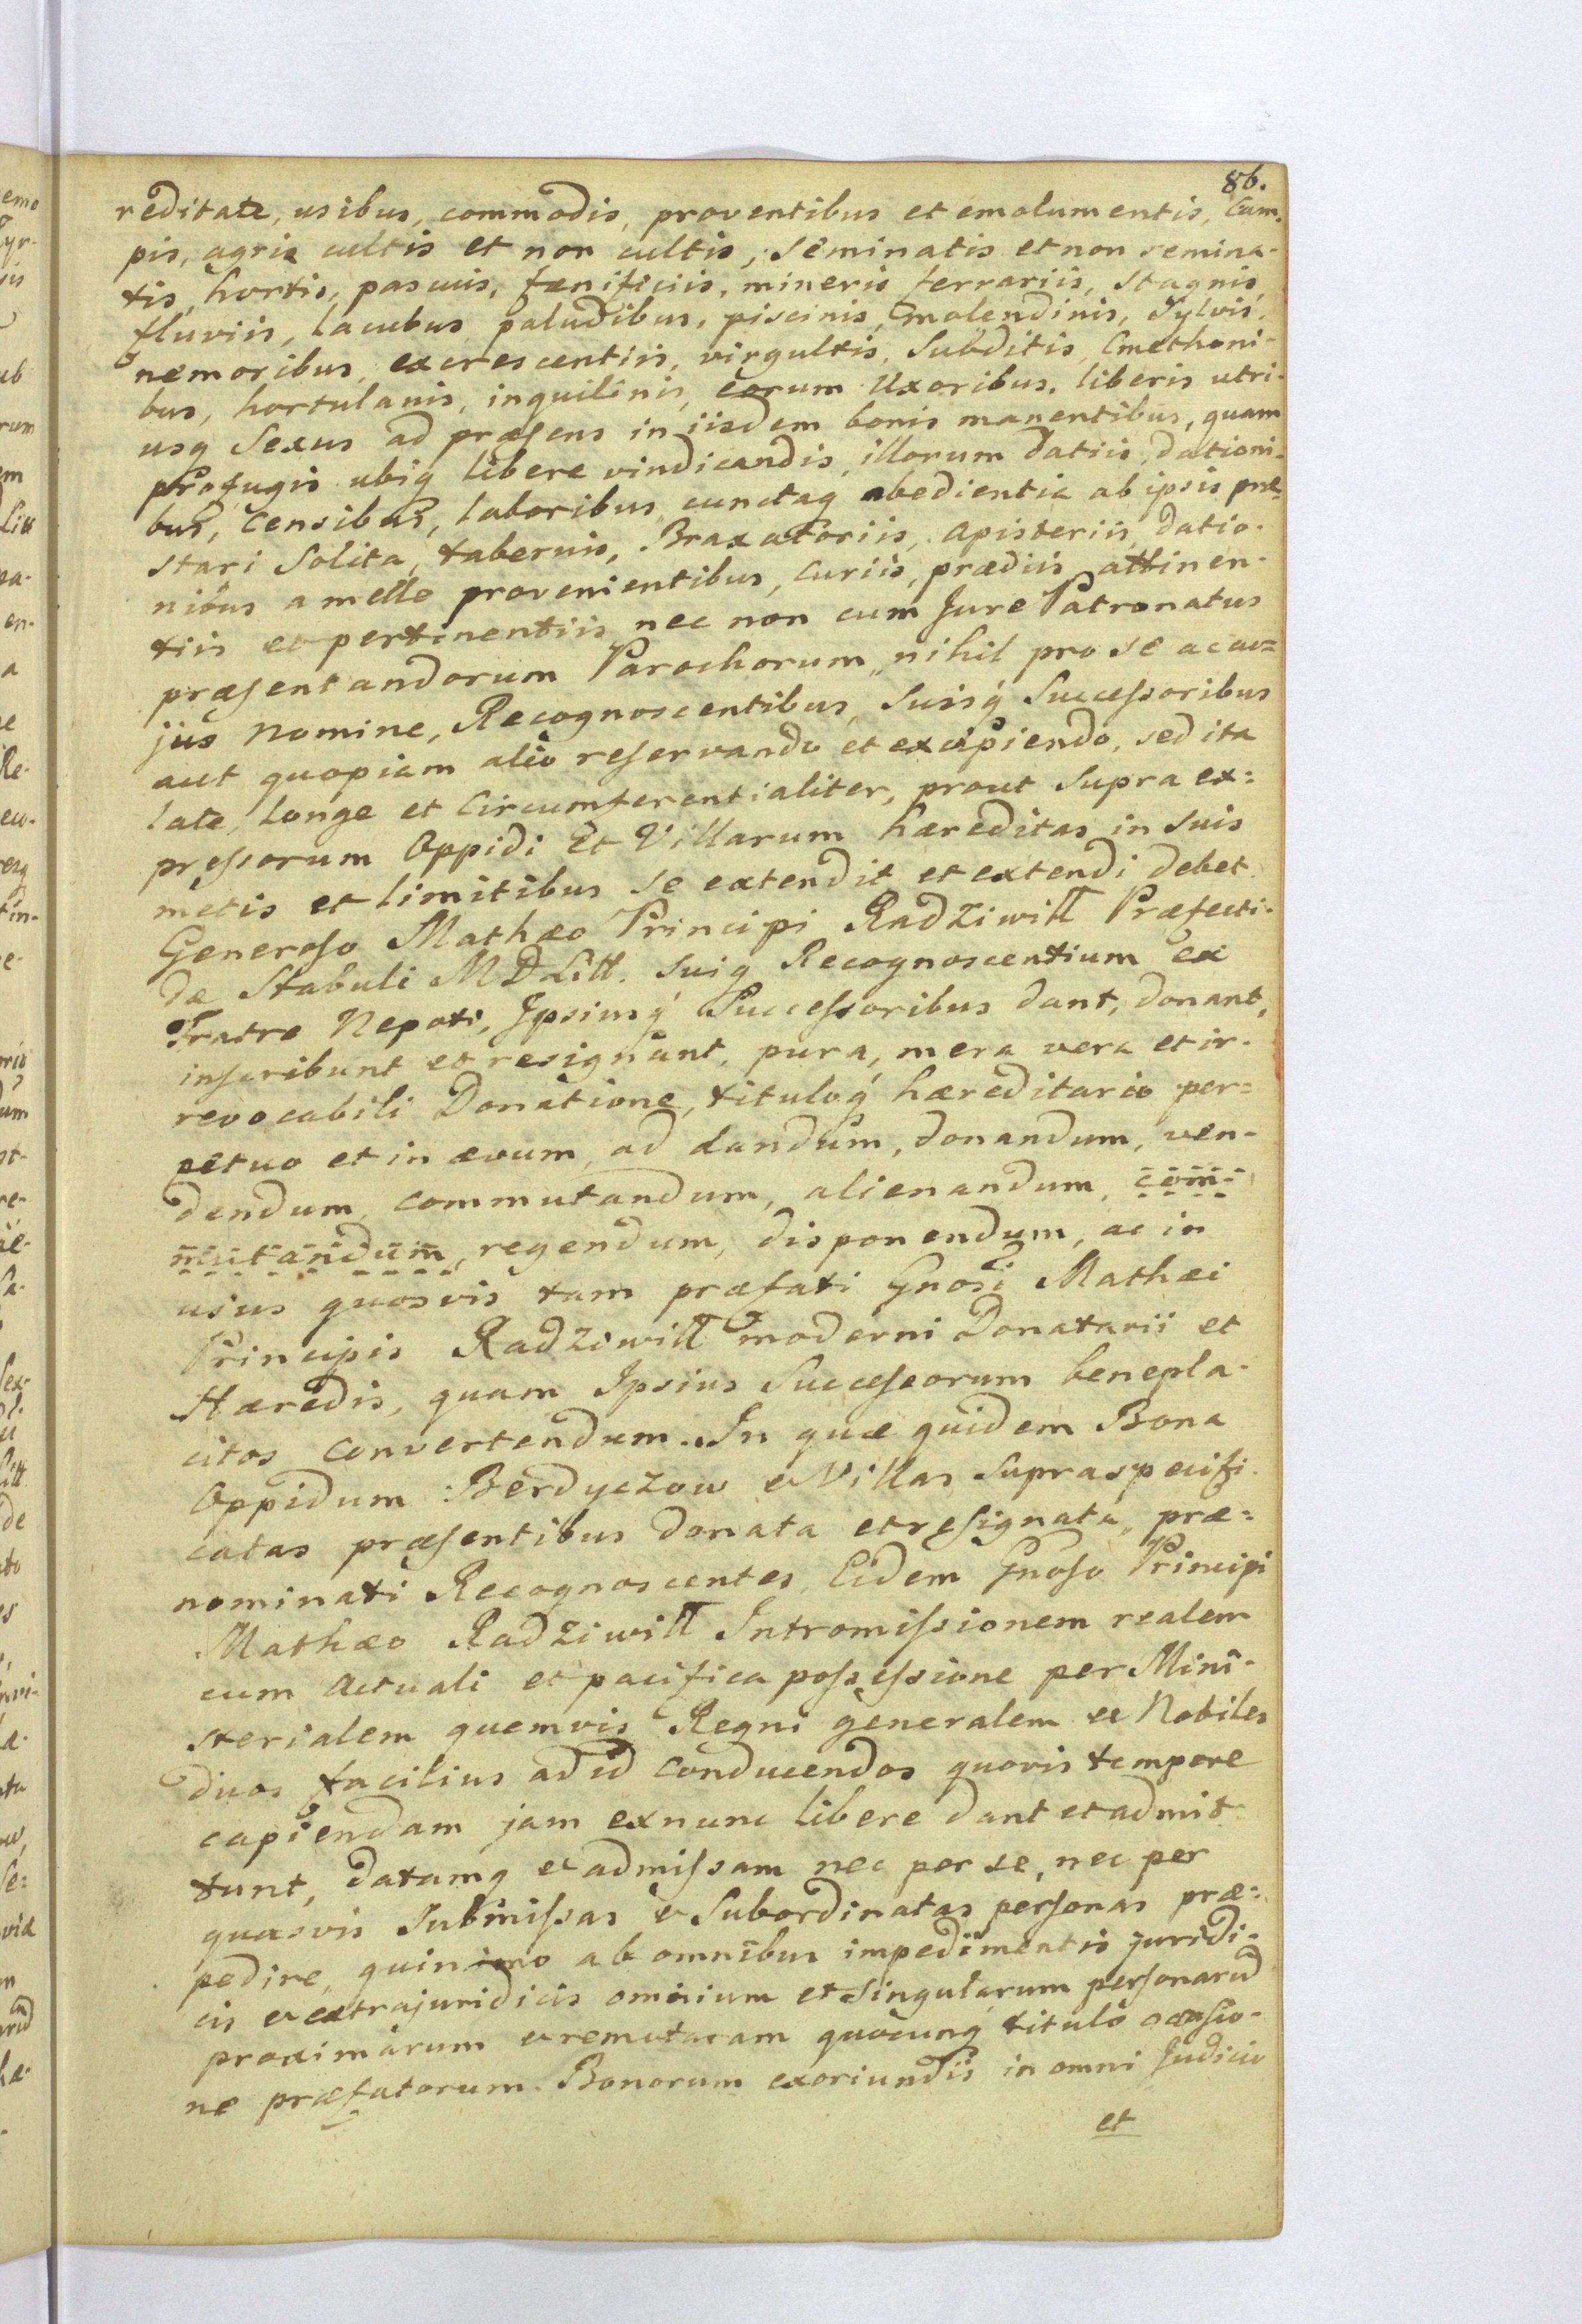 86.
reditate, usibus, commodis, proventibus et emolumentis, Cam-
pis, agris cultis et non cultis, Seminatis et non semina-
tis, hortis, pascuis, fænificiis, mineris ferrariis, Stagnis,
fluviis, lacubus, paludibus, piscinis, Emolendinis, Sylvis,
nemoribus, excrescentiis, virgultis, Subditis, Cmethoni-
bus, hortulanis, inquilinis, eorum Uxoribus, liberis utri-
usq Sexus ad præsens in iisdem bonis manentibus, quam
profugis ubiq libere vindicandis, illorum datiis, dationi-
bus, Censibus, laboribus, cunctaq obedientia ab ipsis præ-
stari Solita, tabernis, Braxatoriis, Apisteriis, datio-
nibus a melle provenientibus, Curiis, prædiis, attinen-
tiis et pertinentiis nec non cum Jure Patronatus
præsentandorum Parochorum, nihil pro se ac cu=
jus Nomine, Recognoscentibus, Suisq́ Successoribus
aut quopiam alio reservando et excipiendo, sed ita
late, longe et Circumferentialiter, prout Supra ex=
pressorum Oppidi Et Villarum hæreditas in Suis
metis et limitibus Se extendit et extendi debet
Generoso Mathæo Principi Radziwiłł Præfecti-
dæ Stabuli M D Litt. Suiq Recognoscentium ex
Fratre Nepoti, Ipsiusq́ Successoribus dant, donant,
inscribunt et resignant, pura, mera vera et ir-
revocabili Donatione, tituloq́ hæreditario per=
petuo et in ævum, ad dandum, donandum, ven-
dendum, Commutandum, alienandum, com-
mutandum, regendum, disponendum, ac in
usus quosvis tam præfati Gnosi Mathæi
Principis Radziwiłł moderni Donatarii et
Hæredis, quam Ipsius Successorum benepla-
citos Convertendum. In quæ quidem Bona
Oppidum Berdyczow et Villas Supraspecifi-
catas præsentibus donata et resignata, præ=
nominati Recognoscentes, Eidem Gnoso Principi
Mathæo Radziwiłł Intromissionem realem
cum Actuali et pacifica possessione per Mini-
sterialem quemvis Regni generalem et Nobiles
duos facilius ad id Conducendos quovis tempore
capiendam jam ex nunc libere dant et admit-
tunt, datamq et admissam nec per se, nec per
quasvis Submissas et Subordinatas personas præ=
pedire, quinimo ab omnibus impedimentis juridi-
cis et extrajuridicis omnium et Singularum personarū
proximarum et remotarum quocunq titulo occasio-
ne præfatorum Bonorum exoriundis in omni Judicio
et